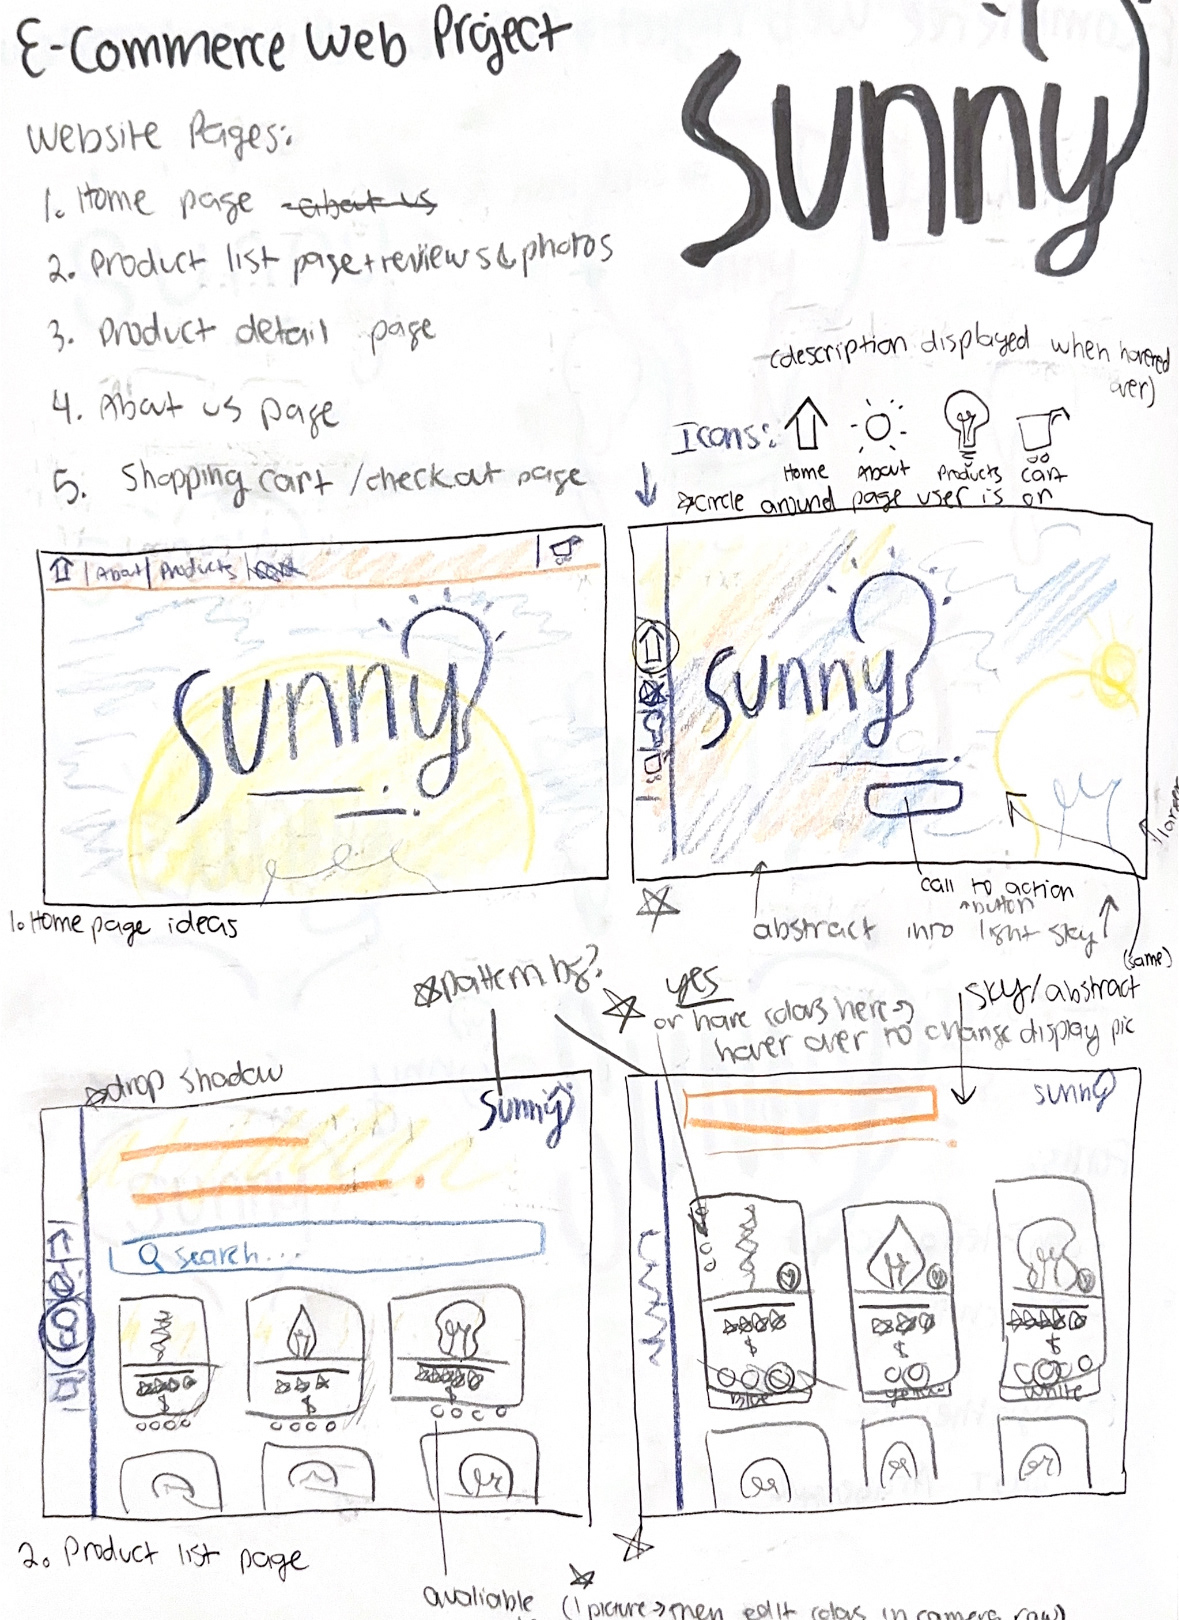 E-Commerce Web Project
sunny
Website Pages:
1. Home page -about us
2. Product list page + reviews & photos
3. Product detail page
4. About us page
5. Shopping cart / checkout page
(description displayed when hovered over)
Icons:
Home About Products Cart
*circle around page user is on
About | Products |
sunny
sunny
1. Home page ideas
call to action
^button
abstract into light sky
(same)
larger
*pattern bg?
yes
or have colors here →
hover over to change display pic
sky/abstract
*drop shadow
sunny
search...
$
$
$
sunny
$
$
$
Blue
yellow
white
2. Product list page
avaliable
(1 picture → then edit colors in camera raw)